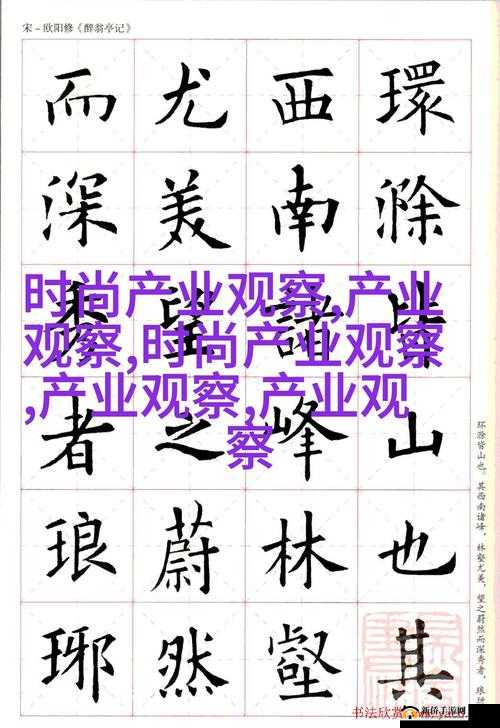 宋－欧阳修《醉翁亭记》
環滁皆山也其
西南諸峰林壑
尤美望之蔚然
而深秀者琅琊
时尚产业观察,产业
观察,时尚产业观察
,产业观察,产业观
察
环滁皆山也。其西南诸峰，林壑尤美，望之蔚然而深秀者，琅
书法欣赏
新侨手游网